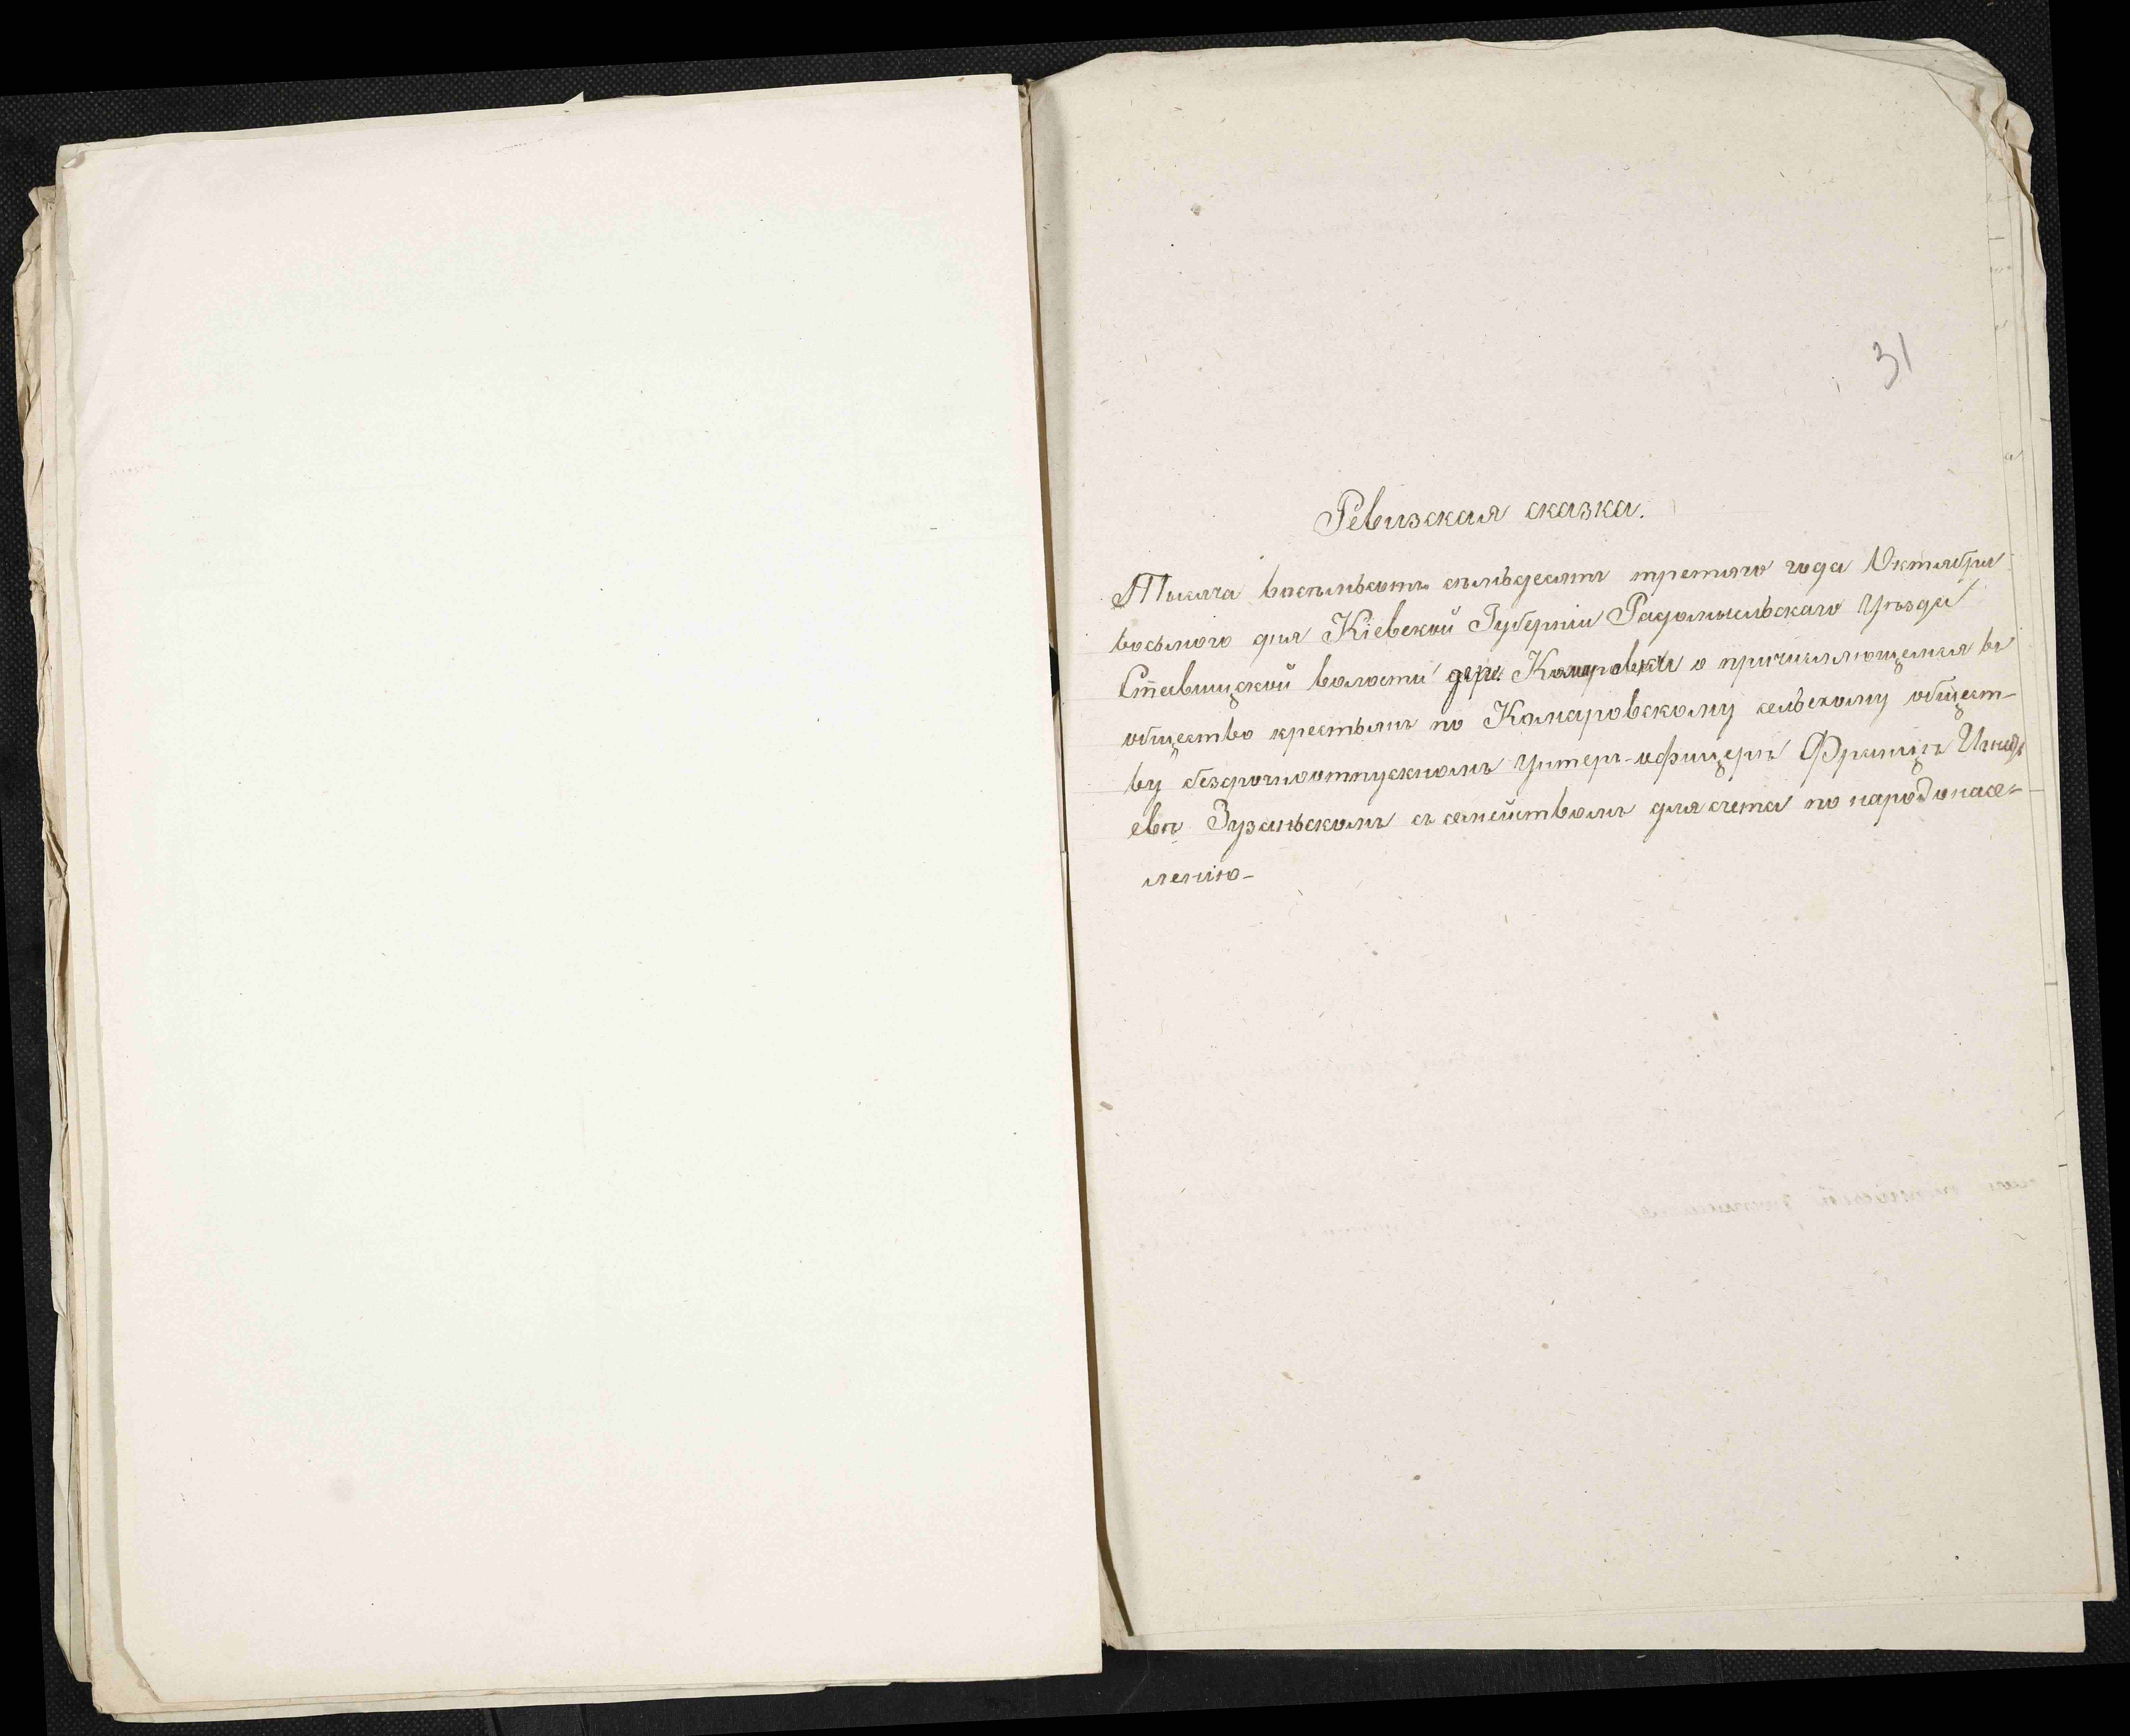 31
Ревизская сказка.
Тысяча восемьсотъ семьдесятъ третьяго года Октября
восьмого дня Кіевской Губерніи Радомысльскаго Уѣзда
Ставищской волости дер. Комаровки о причисляющемся въ
общество крестьянъ по Комаровскому сельскому общест-
ву безсрочноотпускномъ Унтеръ-офицерѣ Францѣ
евѣ Зузаньскомъ съ семействомъ для счета по народонасе-
ленію-